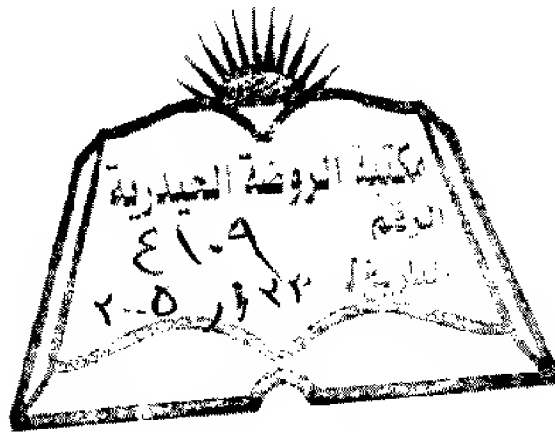 مكتبة الروضة الحيدرية
الرقم ٤١٠٩
التاريخ ٢٠٠٥